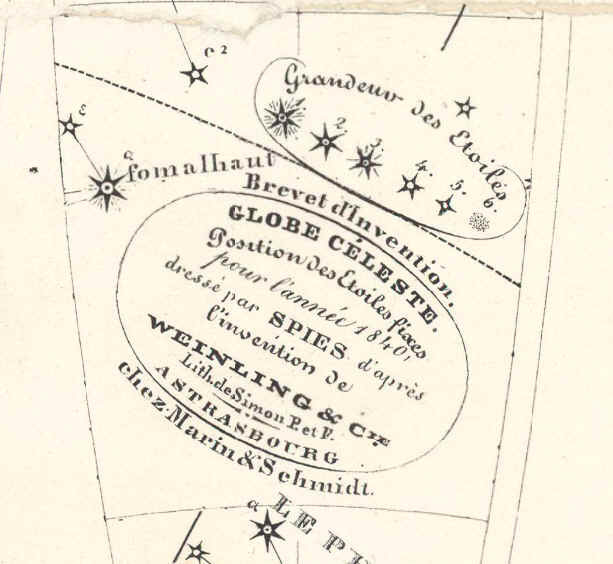 c²
Grandeur des Etoiles
1.
2.
3.
4.
5.
6.
ε
α
fomalhaut
Brevet d'Invention.
GLOBE CÉLESTE.
Position des Etoiles fixes
pour l'année 1840,
dressé par SPIES d'après
l'invention de
WEINLING & Cie
Lith. de Simon P. et F.
A STRASBOURG
chez Marin & Schmidt.
α
LE